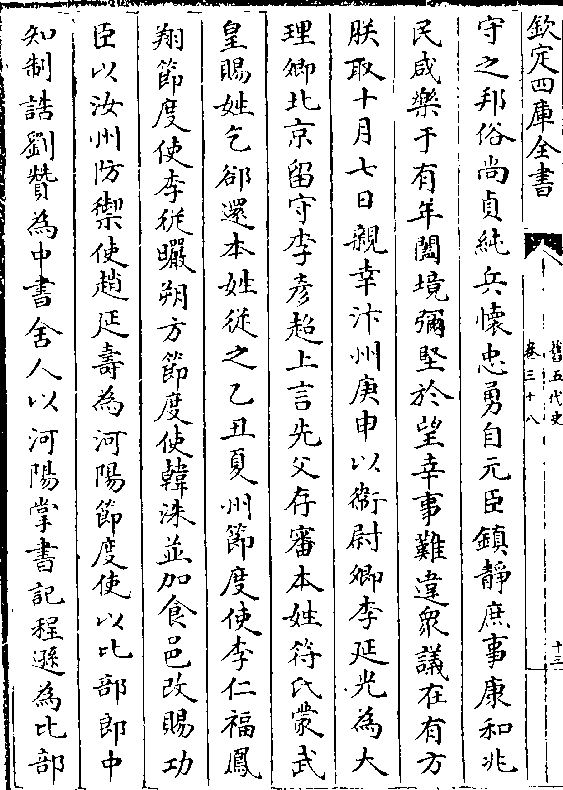 欽定四庫全書
舊五代史
卷三十八
十三
守之邦俗尚貞純兵懷忠勇自元臣鎮靜庶事康和兆
民咸樂于有年闔境彌堅於望幸事難違衆議在有方
朕取十月七日親幸汴州庚申以衞尉卿李延光為大
理卿北京留守李彥超上言先父存審本姓符氏蒙武
皇賜姓乞卻還本姓從之乙丑夏州節度使李仁福鳳
翔節度使李從曮朔方節度使韓洙並加食邑改賜功
臣以汝州防禦使趙延壽為河陽節度使以比部郎中
知制誥劉贊為中書舍人以河陽掌書記程遜為比部